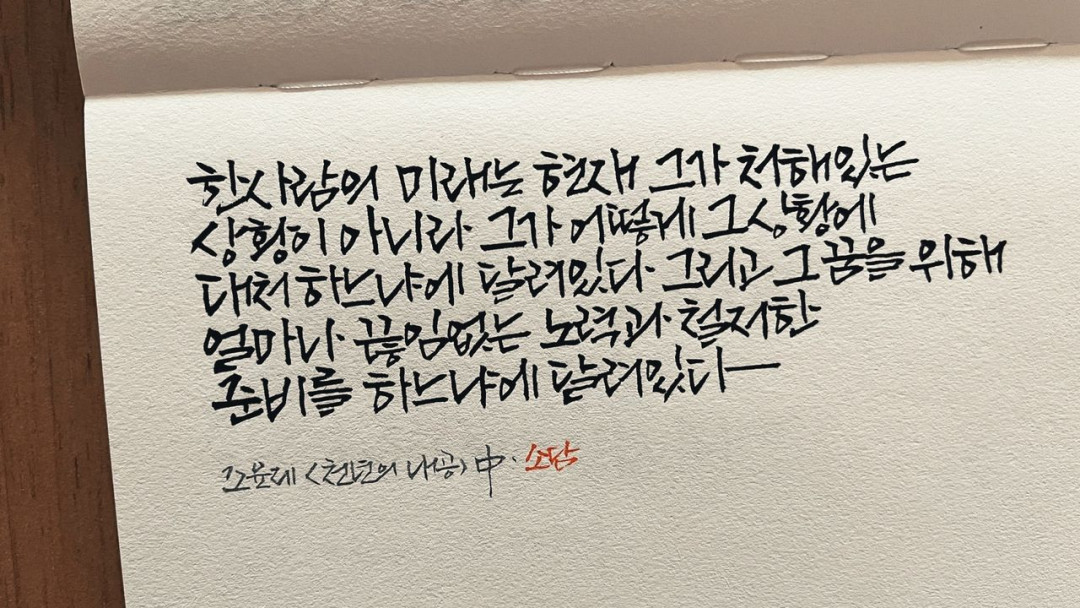 한사람의 미래는 현재 그가 처해있는
상황이 아니라 그가 어떻게 그상황에
대처하느냐에 달려있다 그리고 그 꿈을 위해
얼마나 끊임없는 노력과 철저한
준비를 하느냐에 달려있다—
조윤제 <천년의 내공> 中. 소담